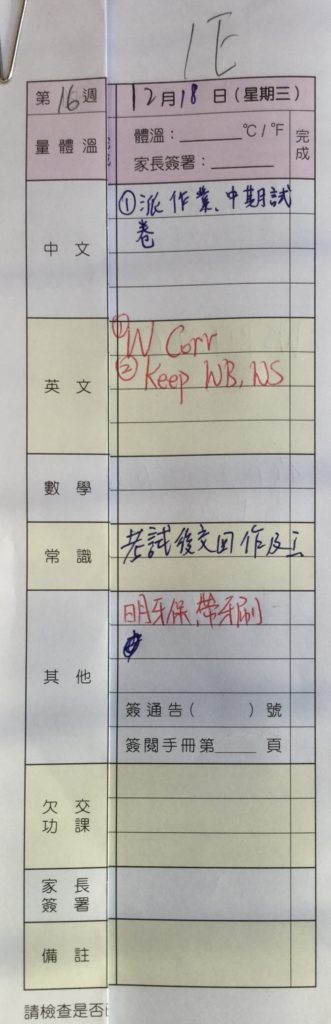 1E
第16週 12月18日(星期三)
量體溫 體溫:______℃/℉ 完成
家長簽署:______
中文 ①派作業、中期試
卷
英文 ①W Corr
②Keep WB, NS
數學
常識 考試後交回作及工
其他 明牙保、帶牙刷
簽通告( )號
簽閱手冊第____頁
欠交
功課
家長
簽署
備註
請檢查是否